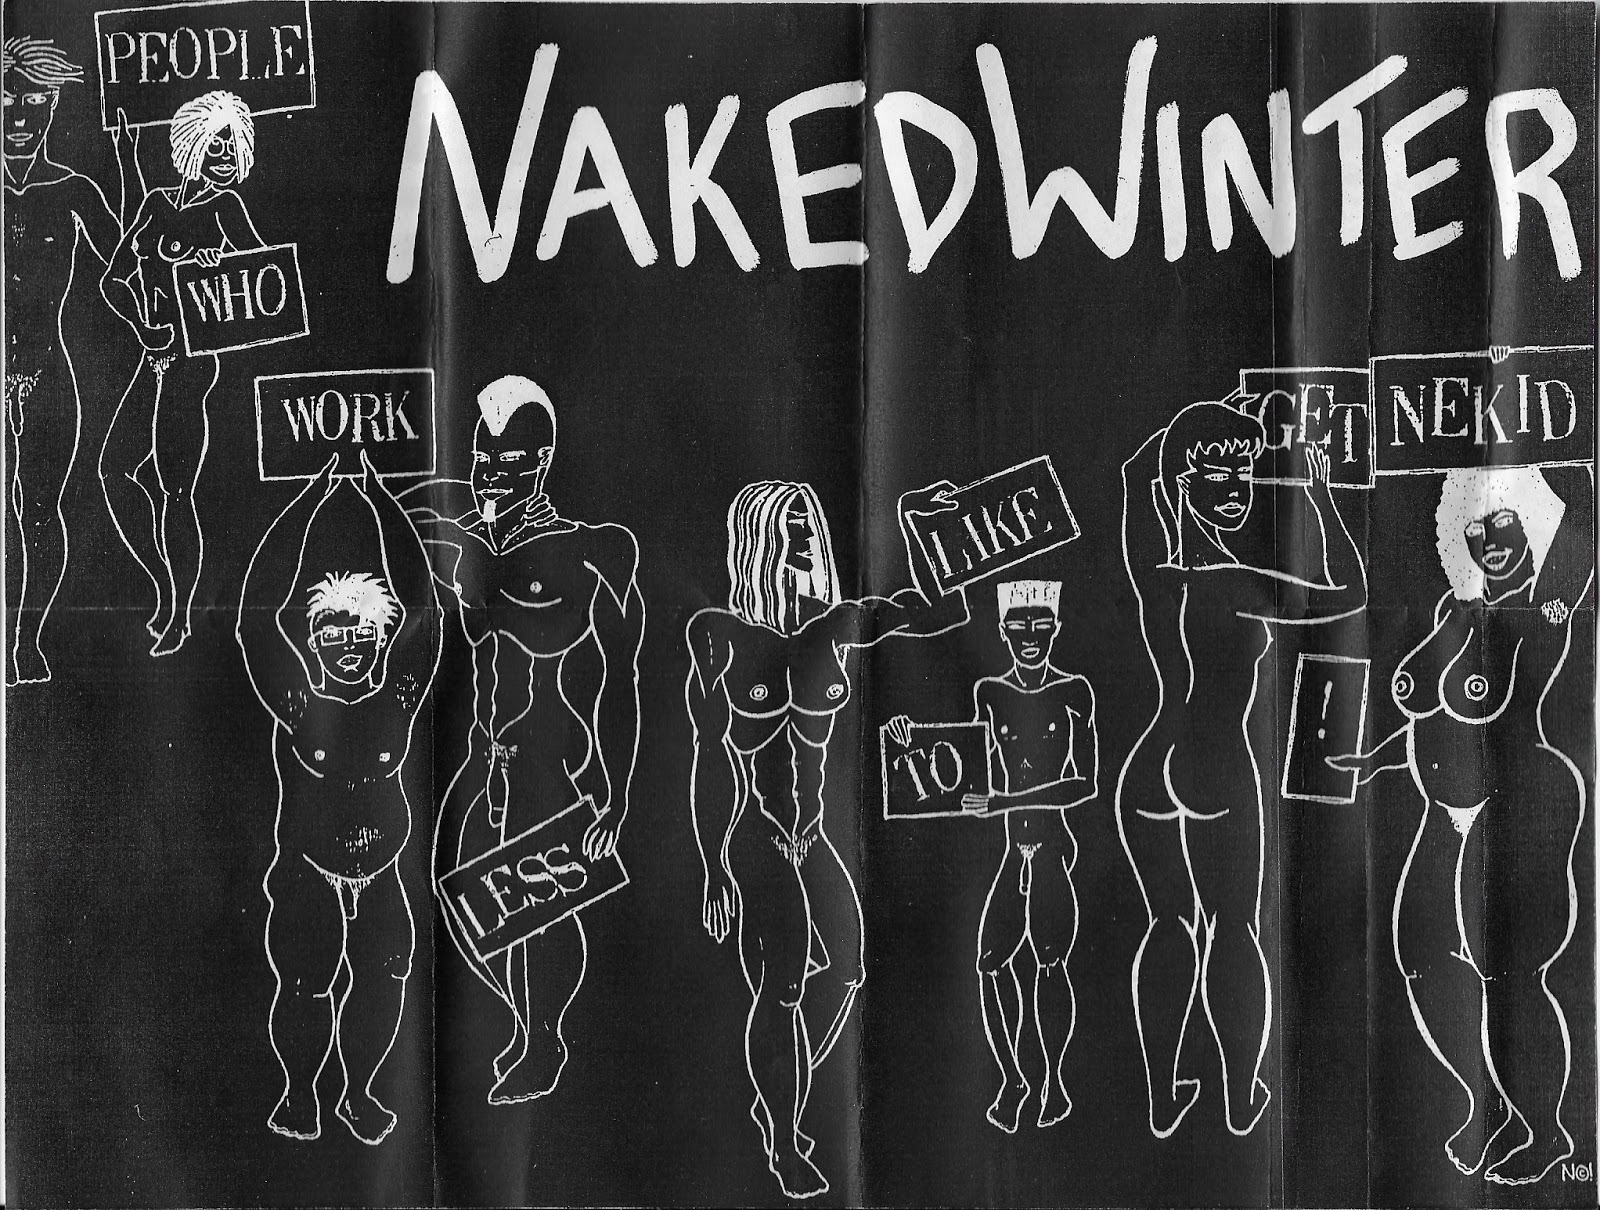 NAKEDWINTER
PEOPLE
WHO
WORK
LESS
LIKE
TO
GET
NEKID
!
N©!